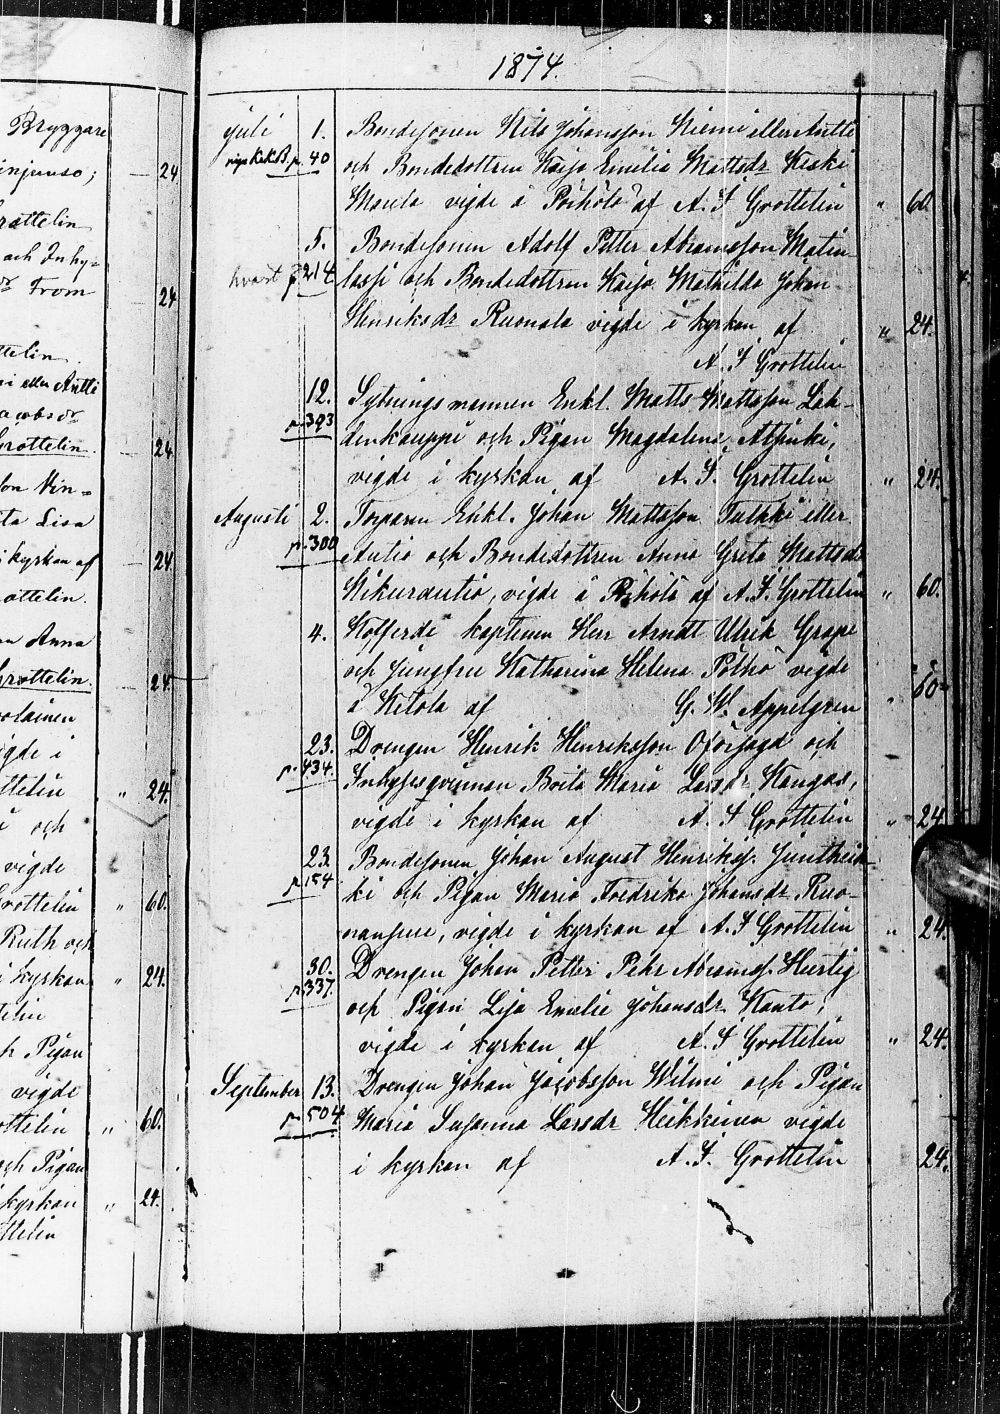 Bryggare
injunso;
24
rottelin
och Inhy=
dr From
24
ttelin.
ni eller Antti
acobsdr
Grottelin.
24
son Nin=
ta Lisa
i kyrkan af
24
ottelin.
Anna
Grottelin.
24
olainen
igde i
ttelin
" 24.
i och
vigde
rottelin
" 60.
Ruth och
i kyrkan
" 24.
telin
h Pigan
vigde
ottelin
" 60.
och Pigan
kyrkan
" 24.
ttelin
1874.
Juli 1. Bondesonen Nils Johansson Niemi eller Antti
p. 40 och Bondedottren Kajsa Emilia Mattsdr Keski
Maula vigde å Pörhölä af A. F Grottelin " 60.
5. Bondesonen Adolf Petter Abramsson Matin
p 214 lassi och Bondedottren Kaisa Mathilda Johan
Henriksdr Ruonala vigde i kyrkan af " 24.
A. F Grottelin
12. Sytningsmannen Enkl. Matts Mattsson Lah-
p. 393 denkauppi och Pigan Magdalena
vigde i kyrkan af A. F. Grottelin " 24.
Augusti 2. Torparen Enkl. Johan Mattsson Tulkki eller
p. 300 Autio och Bondedottren Anna Greta Mattsdr
Nikurautio, vigde å Pörhölä af A. F. Grottelin " 60.
4. Kofferdi kaptenen Herr Arndt Ulrik Grape
och Jungfru Katharina Helena Pölhö vigde
å Ketola af G. W. Appelgren " 60
23. Drengen Henrik Henriksson och
p. 434. Inhysesqvinnan Brita Maria Larsdr Kangas,
vigde i kyrkan af A. F Grottelin " 24
23. Bondesonen Johan August Henrikss. Juntheik-
p 154 ki och Pigan Maria Fredrika Johansdr Ruo-
nansuu, vigde i kyrkan af A. F Grottelin " 24.
30. Drengen Johan Petter Pehr Abramss. Hurtig
p. 337. och Pigan Lisa Emelie Johansdr Kanto,
vigde i kyrkan af A. F Grottelin " 24.
September 13. Drengen Johan Jacobsson Wilmi och Pigan
p. 504 Maria Susanna Larsdr Heikkinen vigde
i kyrkan af A. F. Grottelin 24.